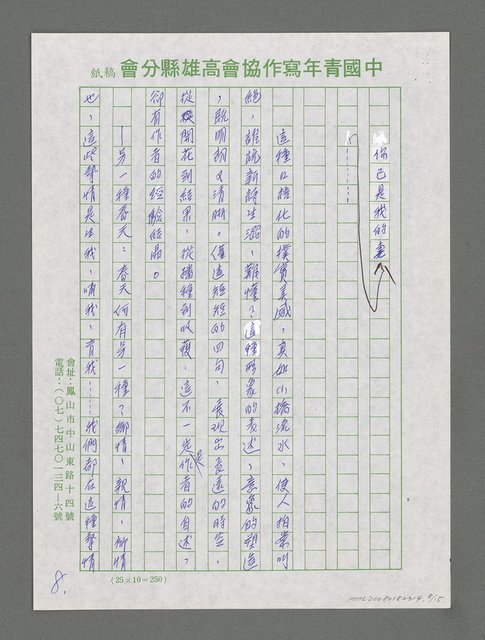 中國青年寫作協會高雄縣分會 稿紙
你已是我的妻
…………
這種口語化的樸實美感，真如小橋流水，使人拍案叫
絕，誰說新詩生澀、難懂？這種形象的表述、意象的塑造
，既明朗又清晰。僅這短短的四句，表現出長遠的時空，
從開花到結果，從播種到收穫，這不一定是作者的自述，
卻有作者的經驗結晶。
—另一種春天：春天何有另一種？鄉情、親情、
也，這些摯情是生我、哺我、育我……我們都在這種摯情
會址：鳳山市中山東路十四號
電話：（○七）七四七○一三四—六號
(25×10=250)
8.